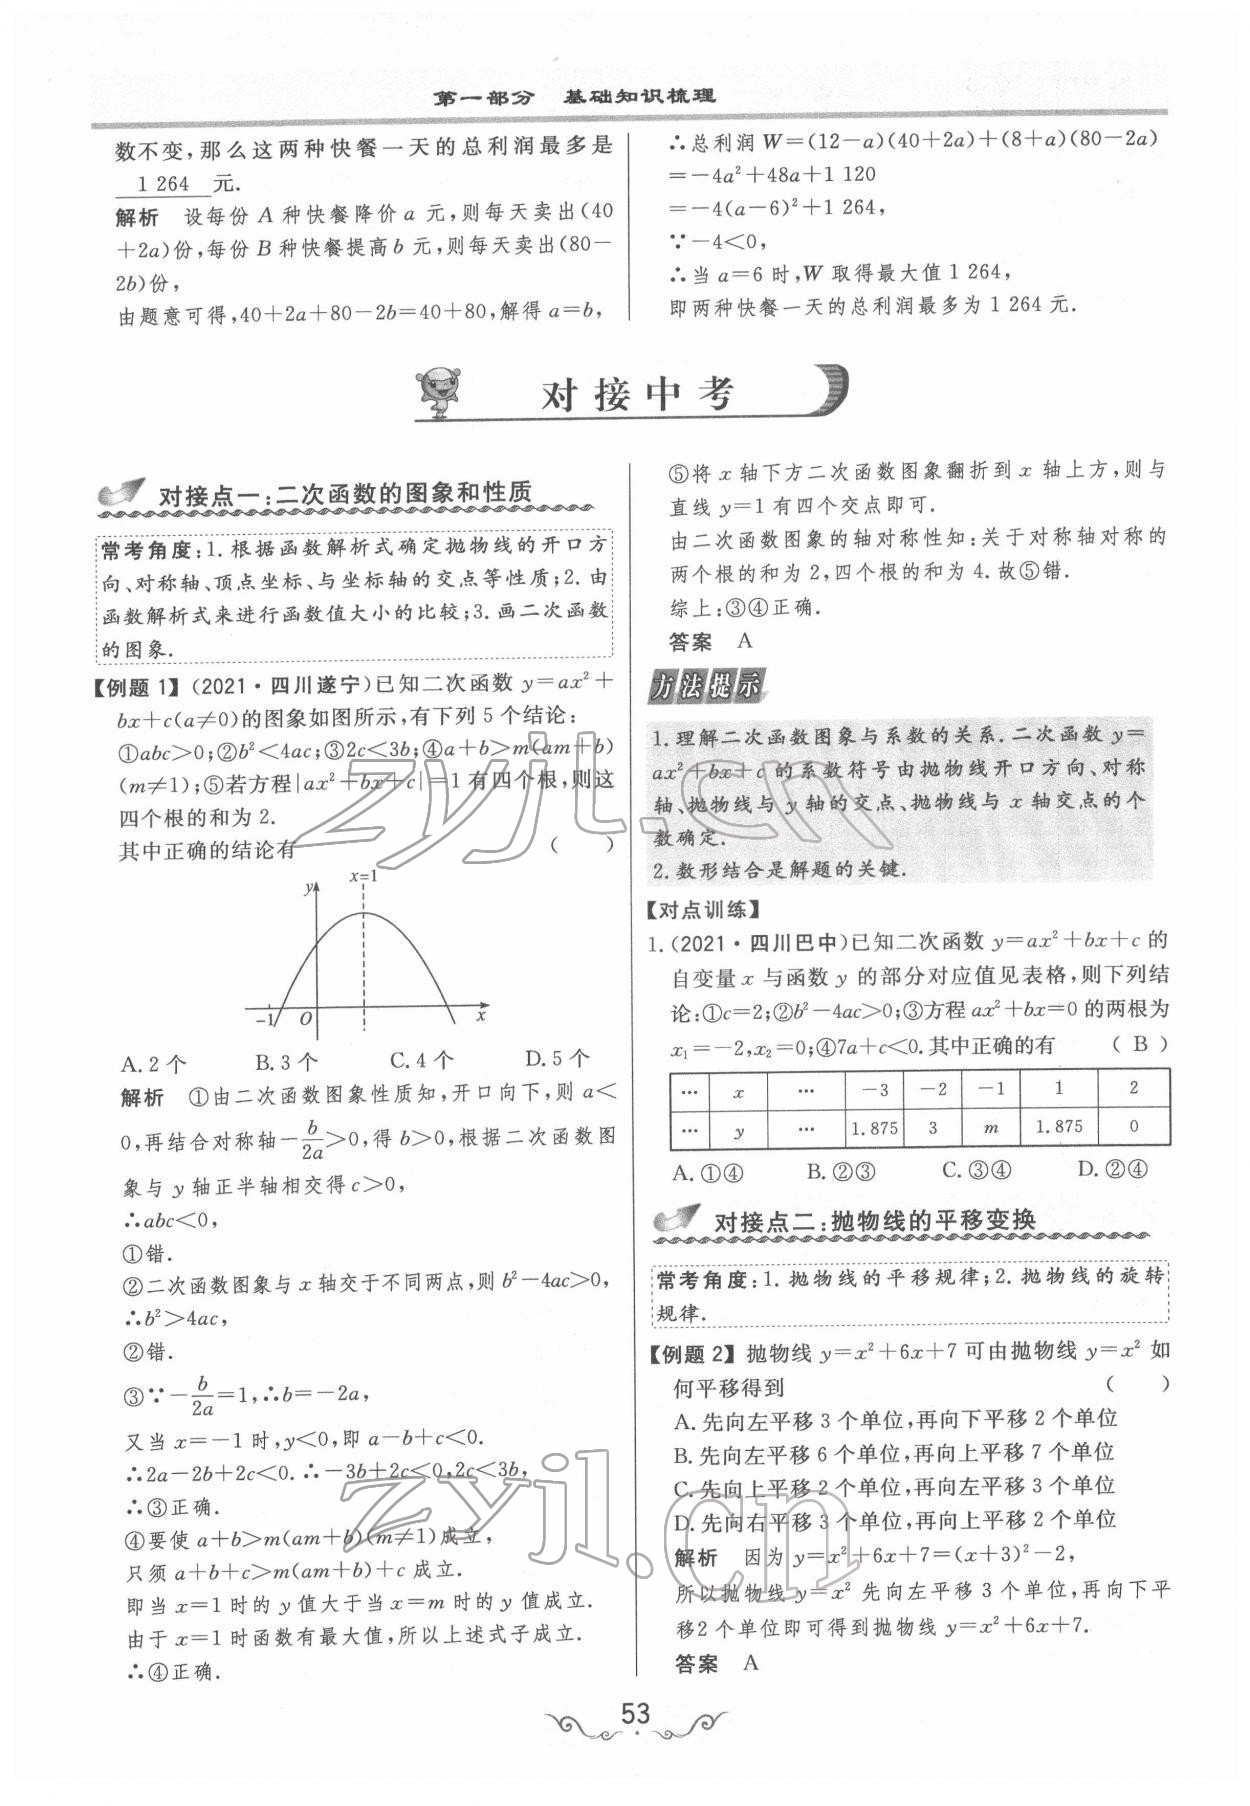 第一部分 基础知识梳理
数不变,那么这两种快餐一天的总利润最多是
1 264 元.
解析 设每份 A 种快餐降价 a 元,则每天卖出(40
+2a)份,每份 B 种快餐提高 b 元,则每天卖出(80-
2b)份,
由题意可得,40+2a+80-2b=40+80,解得 a=b,
∴总利润 W=(12-a)(40+2a)+(8+a)(80-2a)
=-4a²+48a+1 120
=-4(a-6)²+1 264,
∵-4<0,
∴当 a=6 时,W 取得最大值 1 264,
即两种快餐一天的总利润最多为 1 264 元.
对接中考
对接点一:二次函数的图象和性质
常考角度:1. 根据函数解析式确定抛物线的开口方
向、对称轴、顶点坐标、与坐标轴的交点等性质;2. 由
函数解析式来进行函数值大小的比较;3. 画二次函数
的图象.
【例题 1】(2021·四川遂宁)已知二次函数 y=ax²+
bx+c(a≠0)的图象如图所示,有下列 5 个结论:
①abc>0;②b²<4ac;③2c<3b;④a+b>m(am+b)
(m≠1);⑤若方程|ax²+bx+c|=1 有四个根,则这
四个根的和为 2.
其中正确的结论有 ( )
y
x=1
-1
O
x
A. 2 个 B. 3 个 C. 4 个 D. 5 个
解析 ①由二次函数图象性质知,开口向下,则 a<
0,再结合对称轴-b/2a>0,得 b>0,根据二次函数图
象与 y 轴正半轴相交得 c>0,
∴abc<0,
①错.
②二次函数图象与 x 轴交于不同两点,则 b²-4ac>0,
∴b²>4ac,
②错.
③∵-b/2a=1,∴b=-2a,
又当 x=-1 时,y<0,即 a-b+c<0.
∴2a-2b+2c<0.∴-3b+2c<0,2c<3b,
∴③正确.
④要使 a+b>m(am+b)(m≠1)成立,
只须 a+b+c>m(am+b)+c 成立.
即当 x=1 时的 y 值大于当 x=m 时的 y 值成立.
由于 x=1 时函数有最大值,所以上述式子成立.
∴④正确.
⑤将 x 轴下方二次函数图象翻折到 x 轴上方,则与
直线 y=1 有四个交点即可.
由二次函数图象的轴对称性知:关于对称轴对称的
两个根的和为 2,四个根的和为 4.故⑤错.
综上:③④正确.
答案 A
方法提示
1. 理解二次函数图象与系数的关系. 二次函数 y=
ax²+bx+c 的系数符号由抛物线开口方向、对称
轴、抛物线与 y 轴的交点、抛物线与 x 轴交点的个
数确定.
2. 数形结合是解题的关键.
【对点训练】
1. (2021·四川巴中)已知二次函数 y=ax²+bx+c 的
自变量 x 与函数 y 的部分对应值见表格,则下列结
论:①c=2;②b²-4ac>0;③方程 ax²+bx=0 的两根为
x₁=-2,x₂=0;④7a+c<0.其中正确的有 ( B )
… x … -3 -2 -1 1 2
… y … 1.875 3 m 1.875 0
A. ①④ B. ②③ C. ③④ D. ②④
对接点二:抛物线的平移变换
常考角度:1. 抛物线的平移规律;2. 抛物线的旋转
规律.
【例题 2】 抛物线 y=x²+6x+7 可由抛物线 y=x² 如
何平移得到 ( )
A. 先向左平移 3 个单位,再向下平移 2 个单位
B. 先向左平移 6 个单位,再向上平移 7 个单位
C. 先向上平移 2 个单位,再向左平移 3 个单位
D. 先向右平移 3 个单位,再向上平移 2 个单位
解析 因为 y=x²+6x+7=(x+3)²-2,
所以抛物线 y=x² 先向左平移 3 个单位,再向下平
移2 个单位即可得到抛物线 y=x²+6x+7.
答案 A
53
zyjl.cn
zyjl.cn